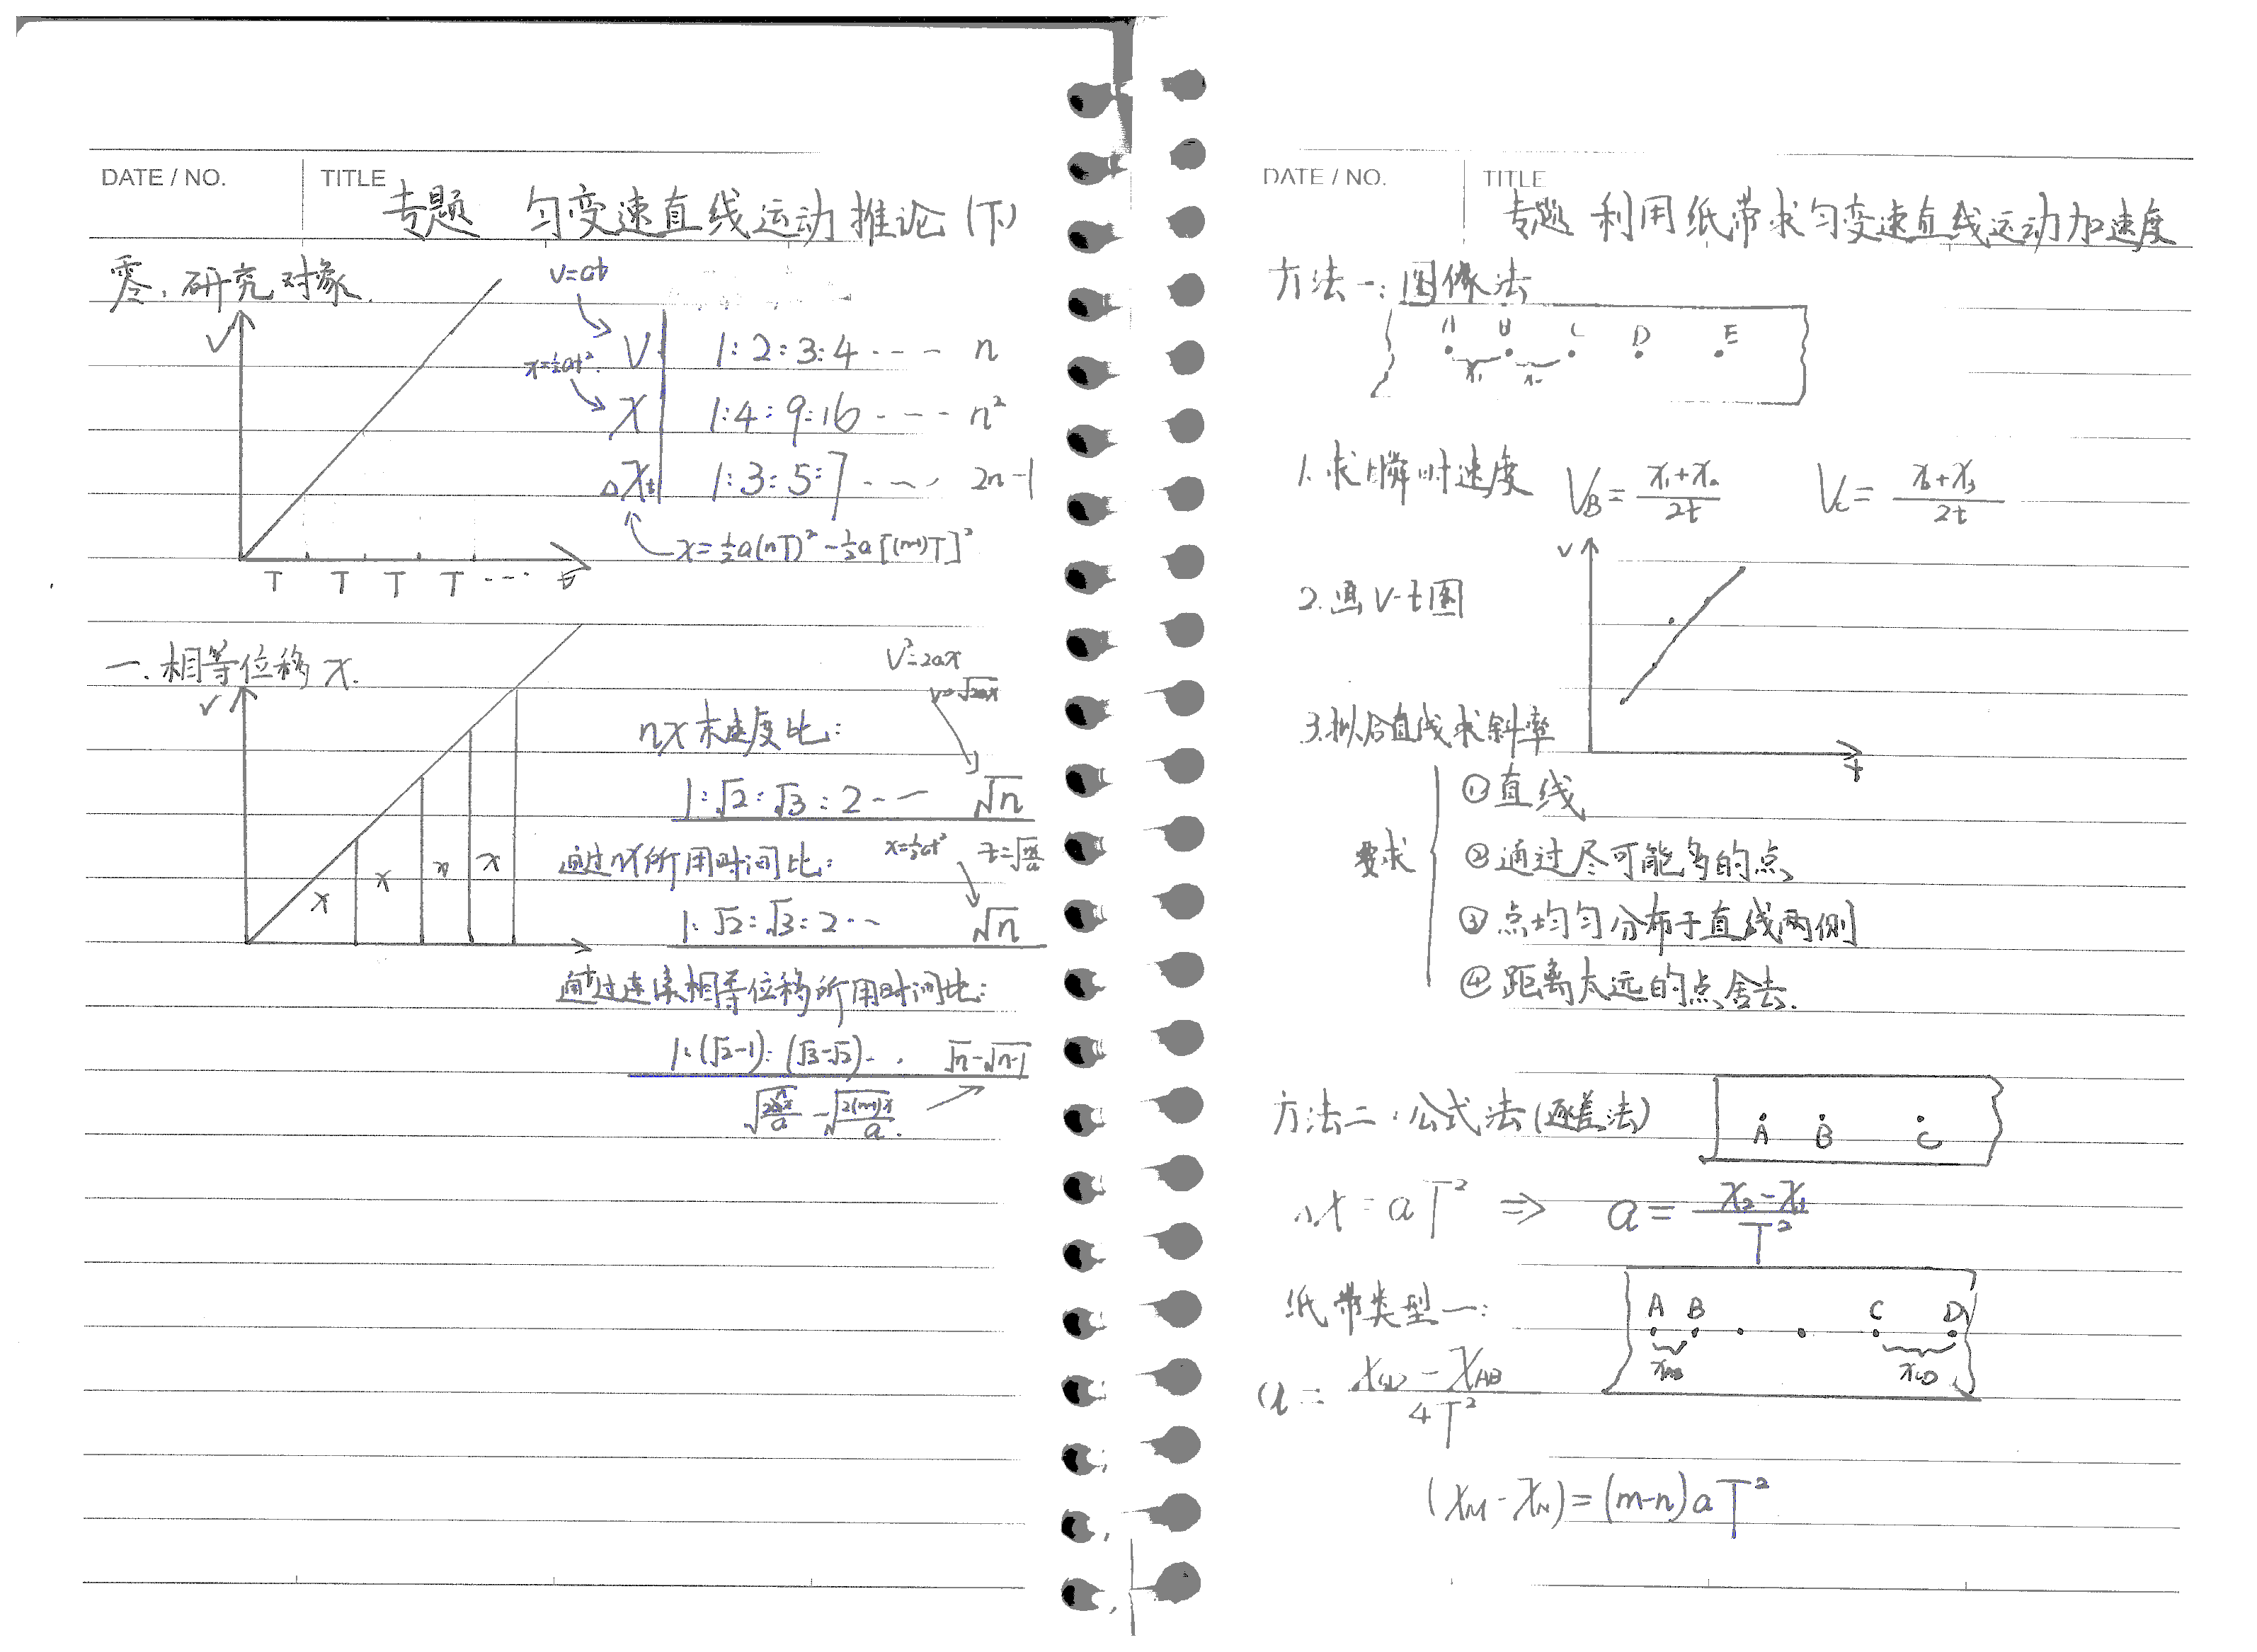 DATE / NO.
TITLE
专题 匀变速直线运动推论(下)
零.研究对象.
v=at
V
V 1:2:3:4 ---- n
x=½at²
x 1:4:9:16 ---- n²
△x 1:3:5:7 ---- 2n-1
x=½a(nT)²-½a[(n-1)T]²
T T T T ··· t
一.相等位移x.
V
V²=2ax
v=√2ax
nx末速度比:
1:√2:√3:2 ---- √n
x x x x
通过nx所用时间比:
x=½at² t=√(2x/a)
1:√2:√3:2 --- √n
通过连续相等位移所用时间比:
1:(√2-1):(√3-√2)-· √n-√(n-1)
√(2nx/a) - √(2(n-1)x/a).
DATE / NO.
TITLE
专题 利用纸带求匀变速直线运动加速度
方法一:图像法
A B C D E
x₁ x₂
1.求瞬时速度 V_B=(x₁+x₂)/2t V_C=(x₂+x₃)/2t
V
2.画V-t图
3.拟合直线求斜率
t
要求
①直线
②通过尽可能多的点
③点均匀分布于直线两侧
④距离太远的点舍去.
方法二.公式法(逐差法)
A B C
△x=aT² ⇒ a=(x₂-x₁)/T²
纸带类型一:
A B C D
x_AB x_CD
a=(x_CD-x_AB)/4T²
(x_M-x_N)=(m-n)aT²